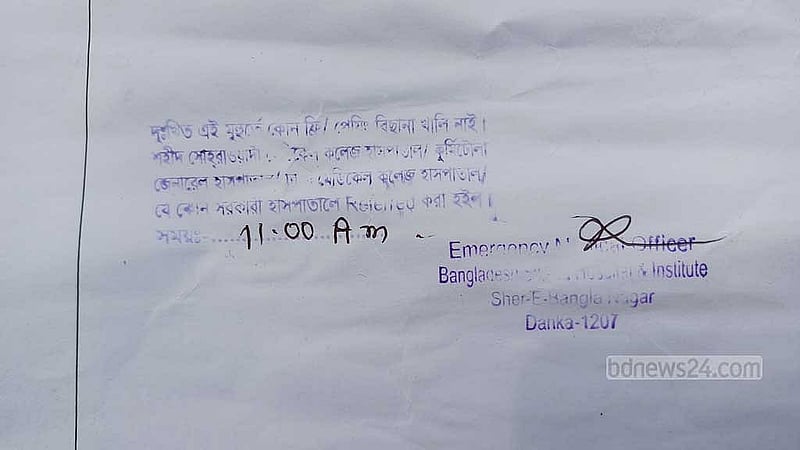 দুঃখিত এই মুহূর্তে কোন ফ্রি/ পেয়িং বিছানা খালি নাই।
শহীদ সোহরাওয়ার্দী কলেজ হাসপাতাল/ কুর্মিটোলা
জেনারেল কলেজ হাসপাতাল/
যে কোন সরকারী হাসপাতালে Referred করা হইল।
সময়ঃ 11:00 A.m
Emergency Officer
Bangladesh & Institute
Sher-E-Bangla Nagar
Dhaka-1207
bdnews24.com